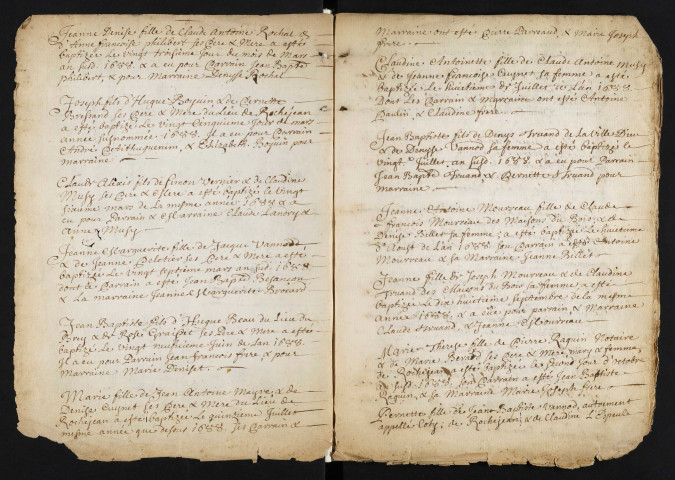 Jeanne Denise fille de Claude Antoine Rochat &
d'Anne francoise philibert ses Pere & Mere a esté
baptizée Le vingt troisime jour du mois de Mars
an susd. 1688. & a eu pour Parrain Jean Bapte
philibert, & pour Marraine Denise Rochet
Joseph fils d'Hugue Boquin & de Pernette
ses Pere & Mere du Lieu de Rochejean
a esté baptizé Le vingt Cinquieme jour de mars
année susnommée 1688. Il a eu pour Parrain
André & Elizabeth Boquin pour
marraine
Claude Alexis fils de Simon Vernier & de Claudine
Musy ses Pere & Mere a esté baptizé Le vingt
sixieme mars de La mesme année 1688 & a
eu pour Parrain & Marraine Claude &
Anne Musy
Jeanne Marguerite fille de Jacque Vannod
& de Jeanne Pelotier ses Pere & Mere a esté
baptizée Le vingt septieme mars an sus. 1688
dont Le Parrain a esté Jean Bapte Besançon
& La marraine Jeanne Marguerite
Jean Baptiste fils d'Hugue Beau du Lieu du
& de Rose ses Pere & Mere a esté
baptizé Le vingt neufvieme Juin de Lan 1688.
Il a eu pour Parrain Jean francois fare & pour
Marraine Marie Deniset
Marie fille de Jean Antoine Maire & de
Denise Cuynet ses Pere & Mere du Lieu de
Rochejean a esté baptizée Le quinzieme Juillet
mesme année que desous 1688. ses Parrain &
Marraine ont esté Pierre & Marie Joseph
fare
Claudine Antoinette fille de Claude Antoine Musy
& de Jeanne francoise Cuynet sa femme a esté
baptizée Le huictieme de Juillet de Lan 1688.
Dont Les Parrain & Marraine ont esté Antoine
Paulin & Claudine fare
Jean Baptiste fils de Denys de La Ville Dieu
& de Denyse Vannod sa femme a esté baptizé Le
vingt Juillet, an susd. 1688. & a eu pour Parrain
Jean Bapte & Pernette pour
Marraine
Jeanne Antoine Mourreau fille de Claude
francois Mourreau des Maisons du Bois & de
Denise Billet sa femme, a esté baptizée Le huictieme
d'Aoust de Lan 1688. son Parrain a esté Antoine
Mourreau & sa Marraine Jeanne Billet
Jeanne fille de Joseph Mourreau & de Claudine
des Maisons du Bois sa femme a esté
baptizée Le dix huictieme septembre de la mesme
année 1688, & a eue pour parrain & Marraine
Claude & Jeanne Mourreau
Marie Therese fille de Pierre Raguin Notaire
& de Marie ses Pere & Mere, mary & femme,
de Rochejean a esté baptizée Le second jour d'octobre
an susd. 1688, son Parrain a esté Jean Baptiste
& sa Marraine Marie Joseph fare
Pernette fille de Jean Baptiste Vannod, autrement
appellé de Rochejean & de Claudine